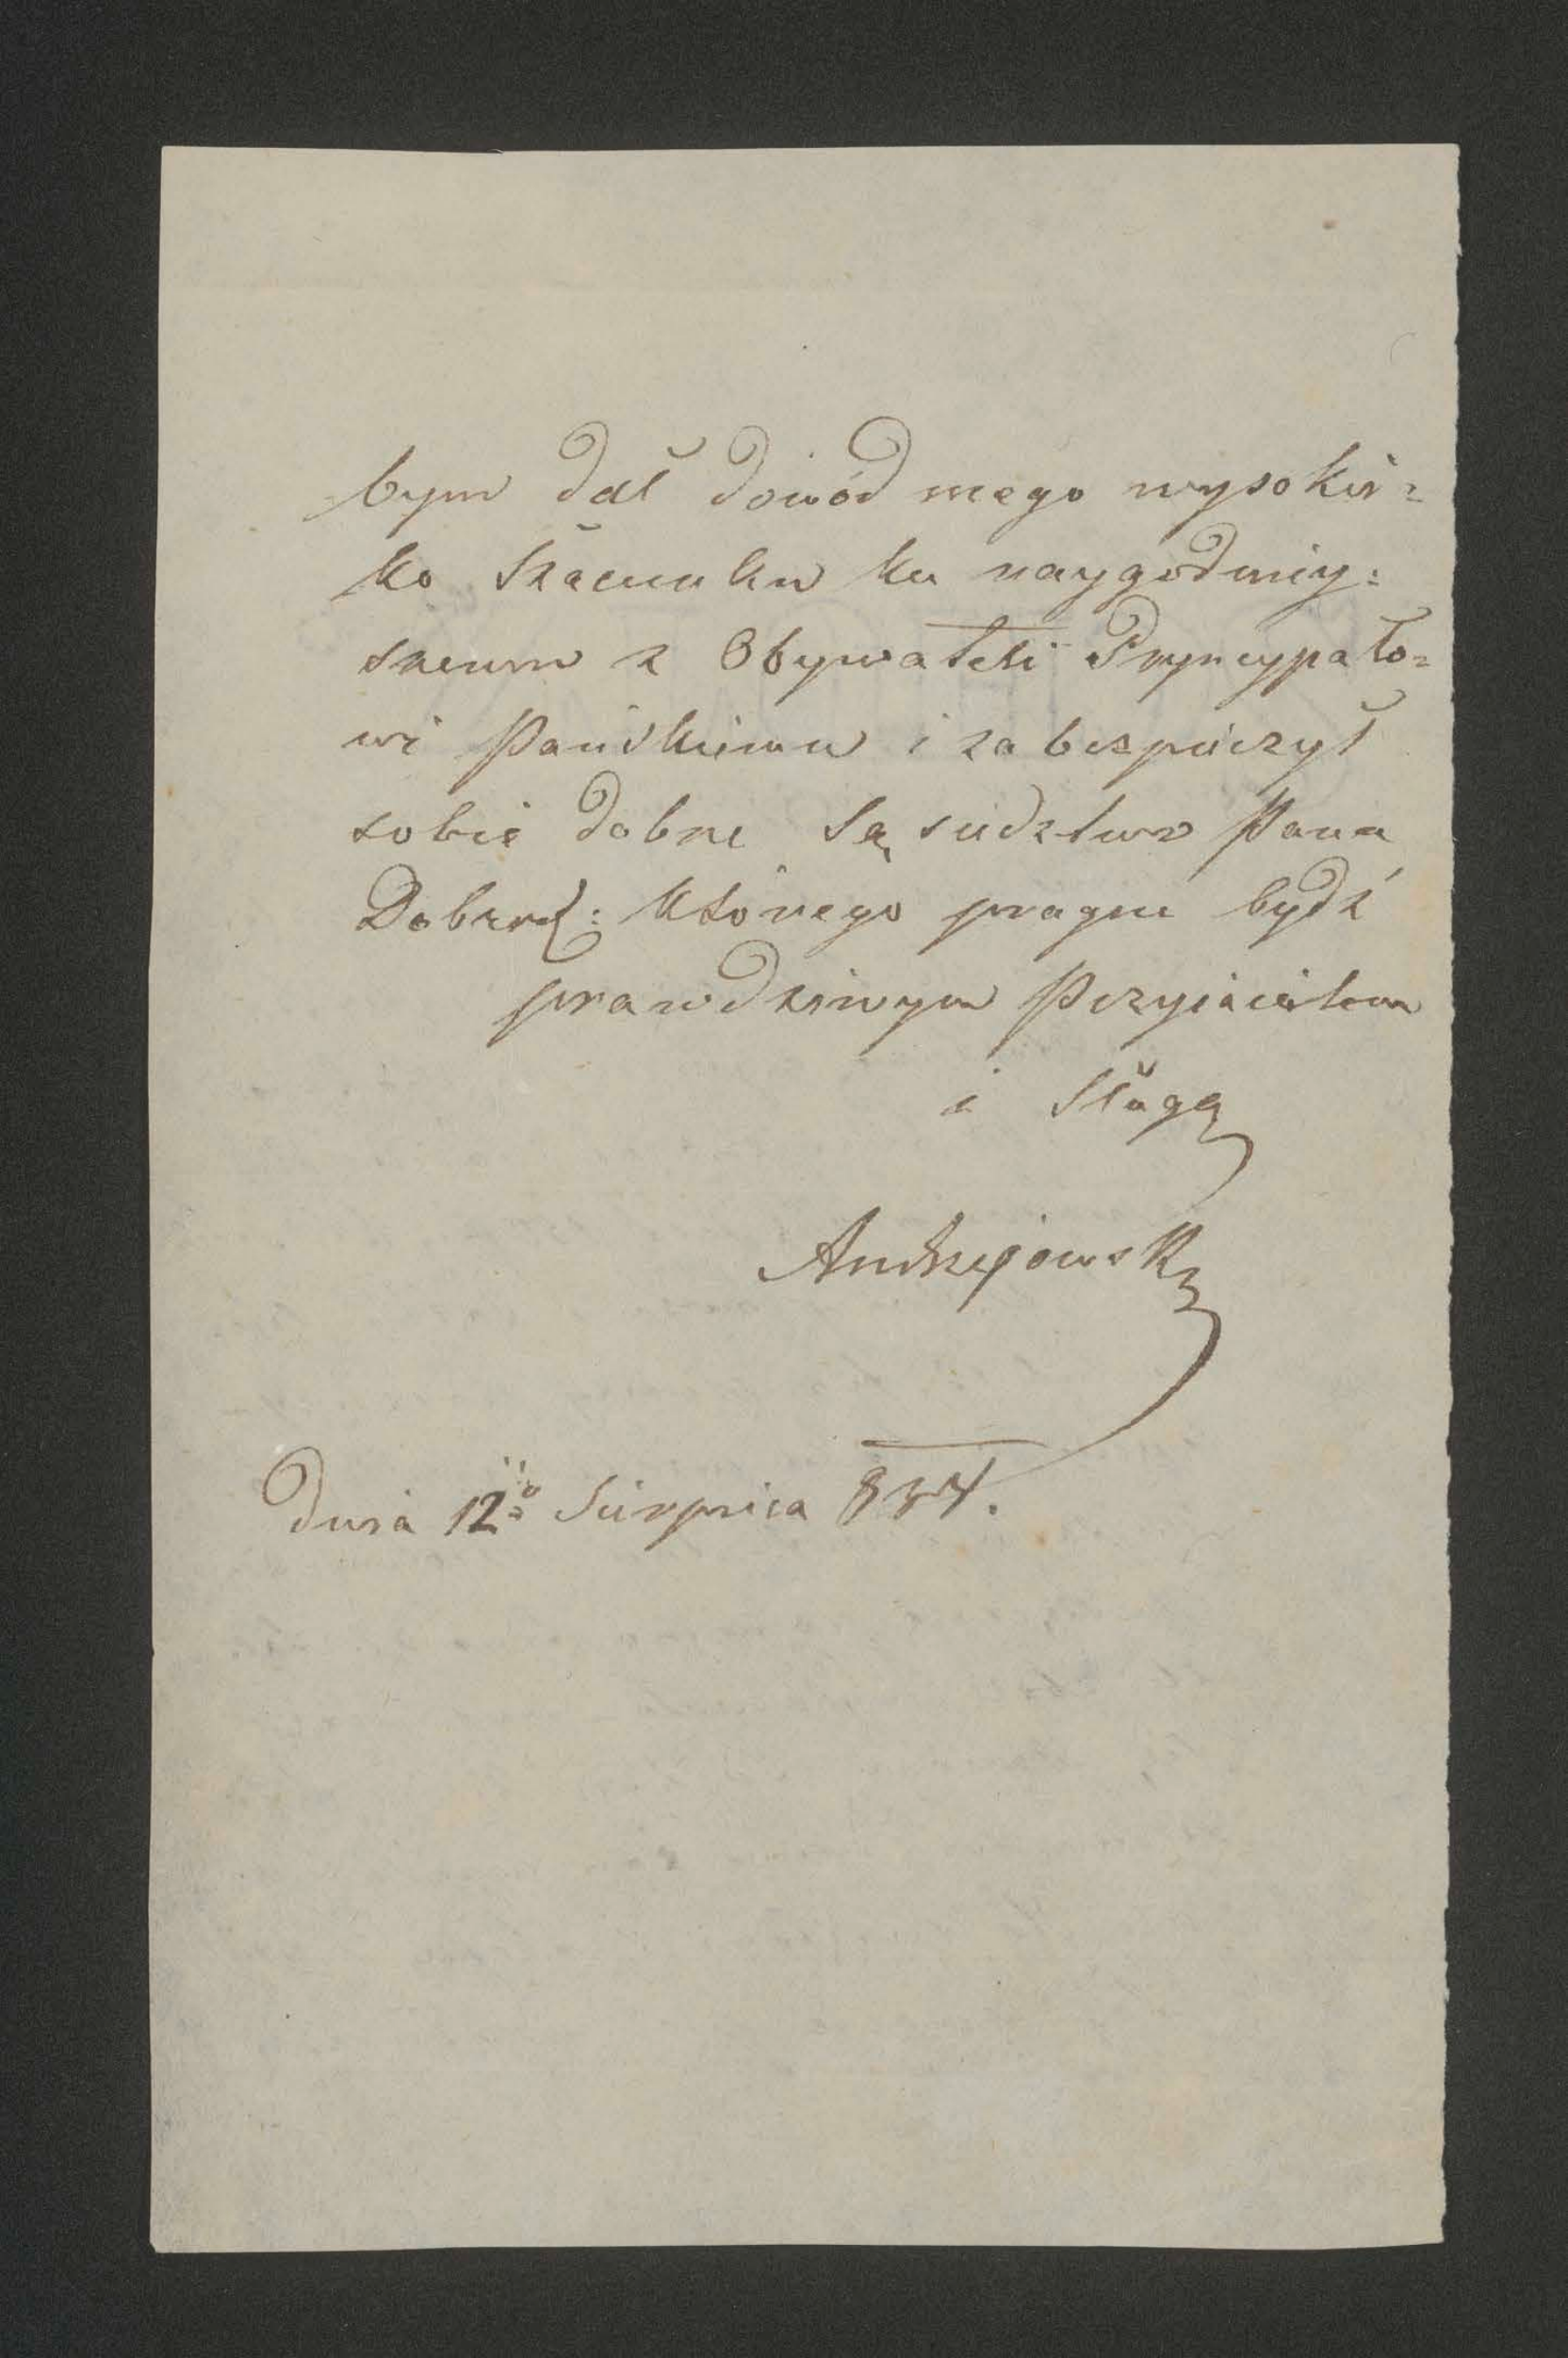 bym dał dowód mego wysokie=
ko Szacunku ku naygodniey:
szemu z Obywateli Pryncypało=
wi Pańskiemu i zabezpieczył
sobie dobre Są siedztwo Pana
Dobrod: którego pragnę bydź
prawdziwym Przyiacielem
i Sługą
Andrzejowski
Dnia 12º Sierpnia 834.